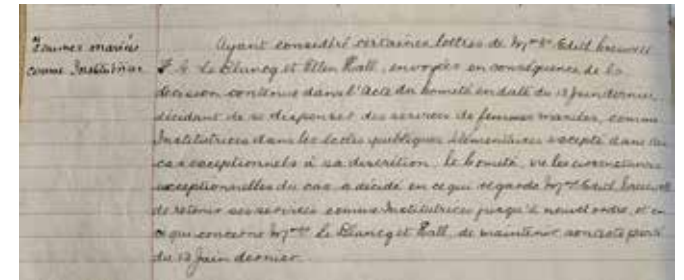 Femmes mariées
comme Institutrices
Ayant considéré certaines lettres de Mmes Edith
F. A. Le Blancq et Ellen Hall, envoyées en conséquence de la
décision contenue dans l'Acte du Comité en date du 12 Juin dernier,
décidant de se dispenser des services de femmes mariées, comme
Institutrices dans les Ecoles publiques élémentaires excepté dans des
cas exceptionnels à sa discrétion, le Comité, vu les circonstances
exceptionnelles du cas a décidé en ce qui regarde Mme Edith
de retenir ses services comme Institutrice jusqu'à nouvel ordre, et en
ce qui concerne Mmes Le Blancq et Hall, de maintenir son Acte
du 12 Juin dernier.